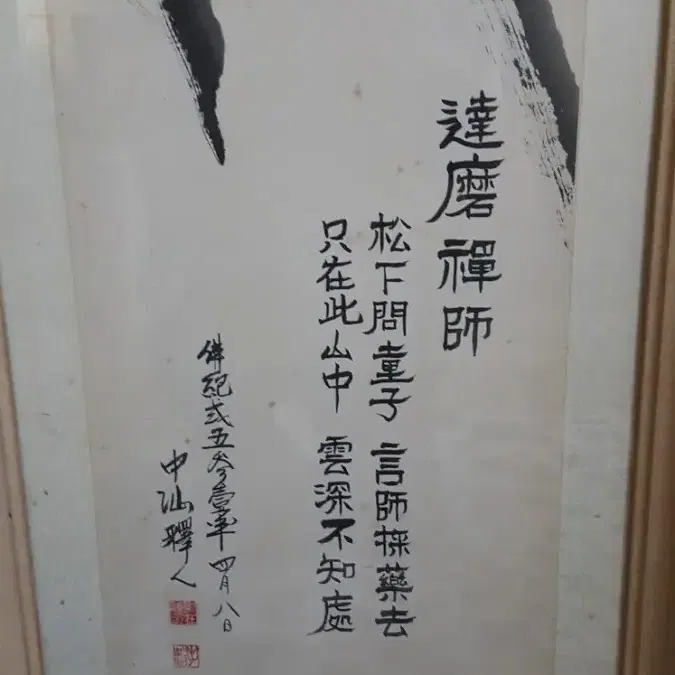 達磨禪師
松下問童子 言師採藥去
只在此山中 雲深不知處
佛紀弍五參壹年 四月八日
中汕釋人